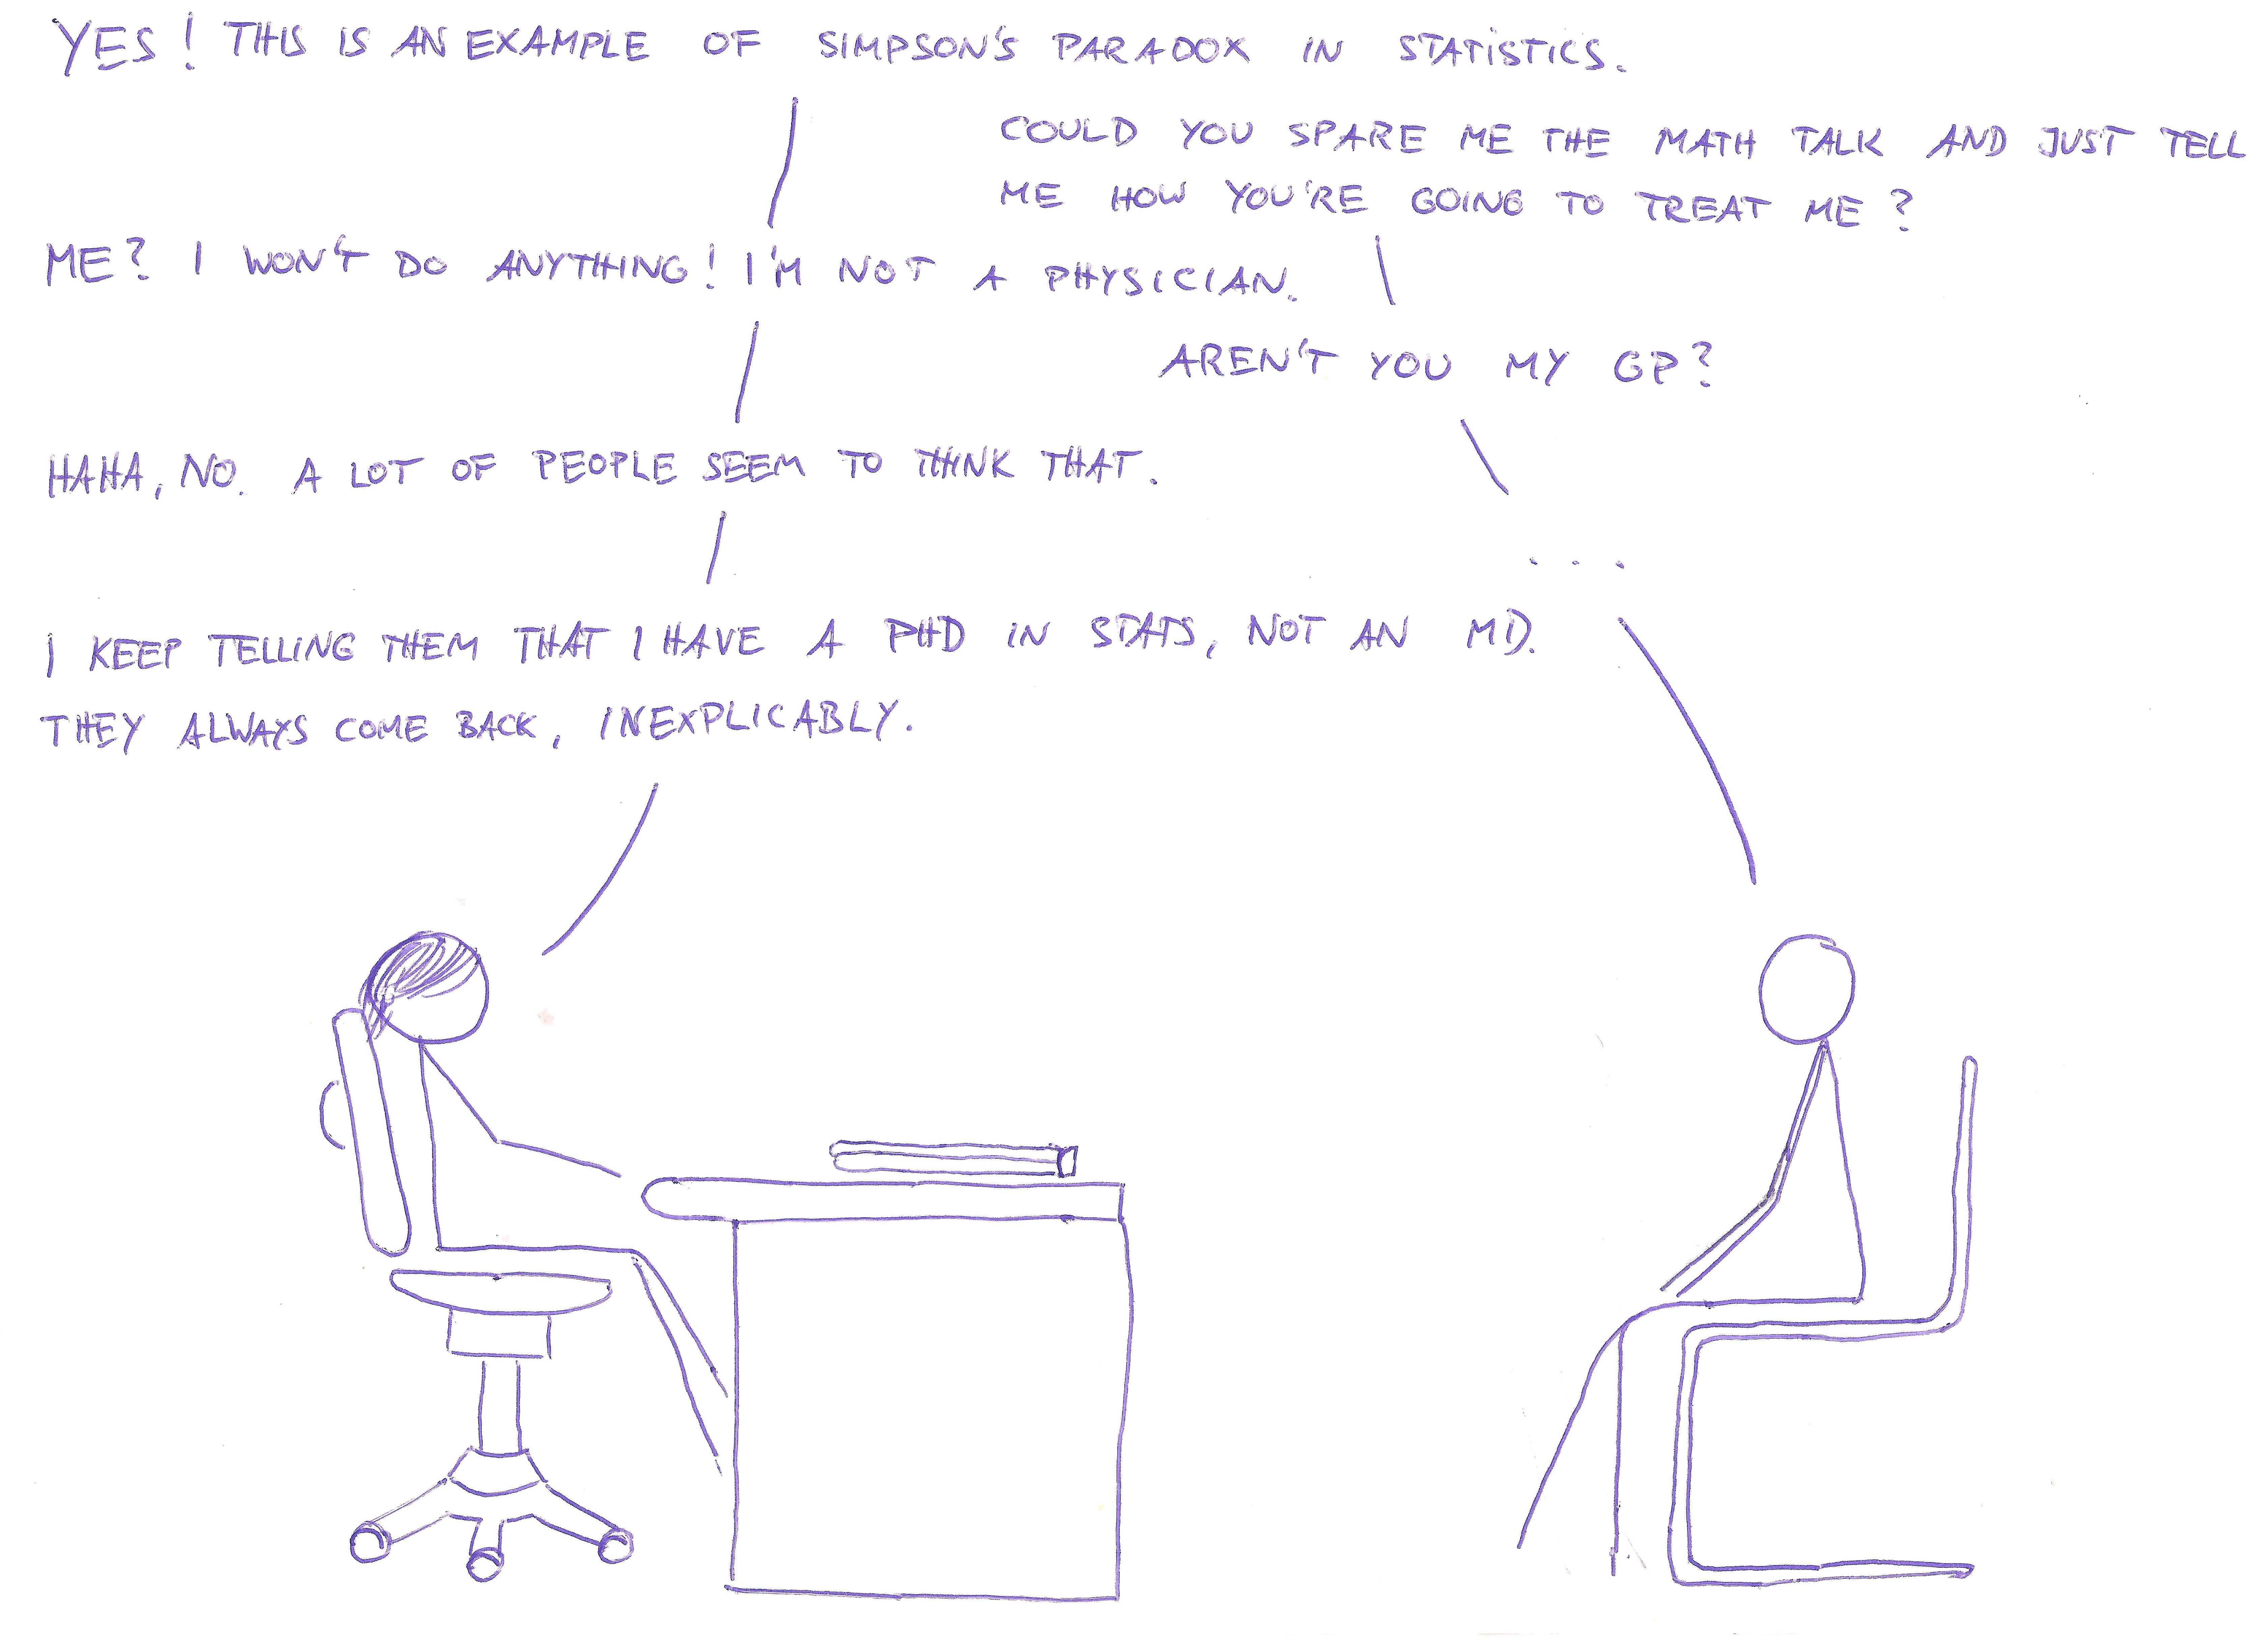 YES! THIS IS AN EXAMPLE OF SIMPSON'S PARADOX IN STATISTICS.
COULD YOU SPARE ME THE MATH TALK AND JUST TELL
ME HOW YOU'RE GOING TO TREAT ME?
ME? I WON'T DO ANYTHING! I'M NOT A PHYSICIAN.
AREN'T YOU MY GP?
HAHA, NO. A LOT OF PEOPLE SEEM TO THINK THAT.
...
I KEEP TELLING THEM THAT I HAVE A PHD IN STATS, NOT AN MD.
THEY ALWAYS COME BACK, INEXPLICABLY.